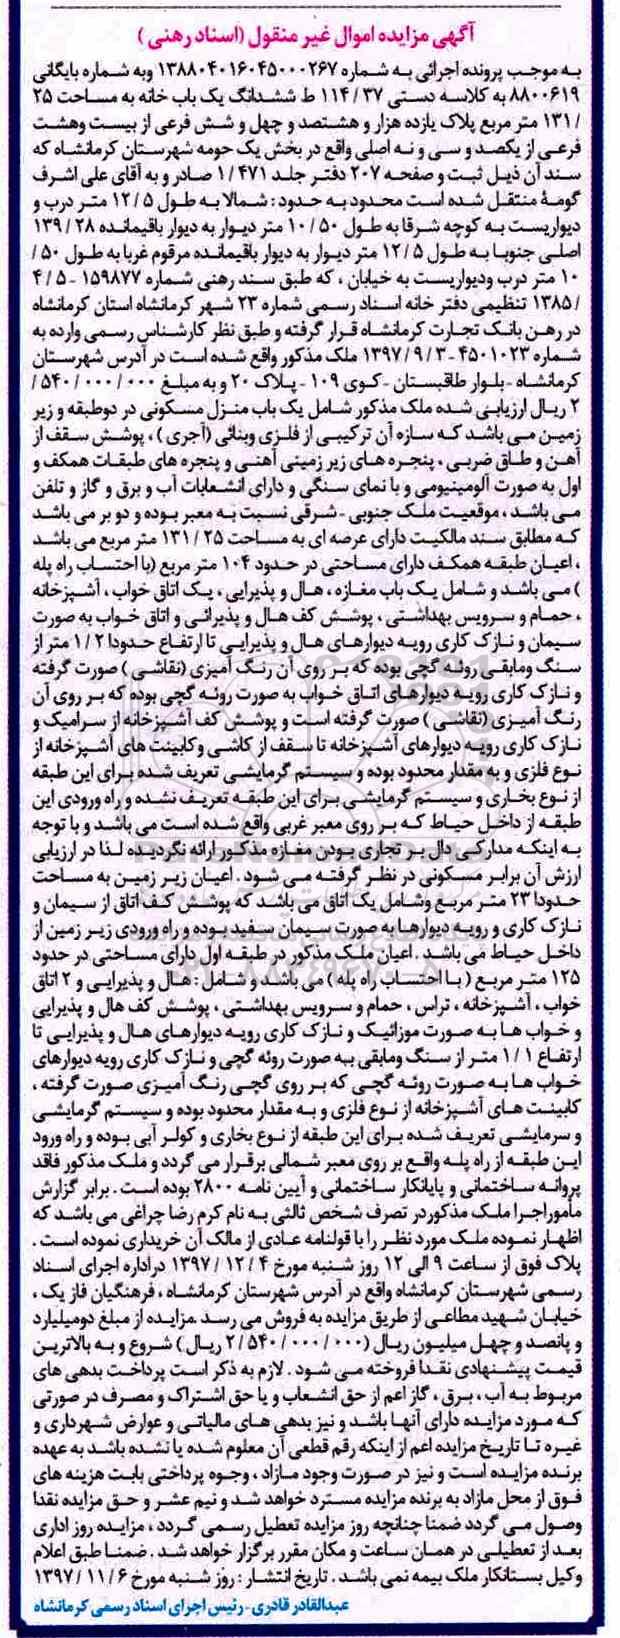 آگهی مزایده اموال غیر منقول (اسناد رهنی)
به موجب پرونده اجرائی به شماره ۱۳۸۸۰۴۰۱۶۰۴۵۰۰۰۲۶۷ وبه شماره بایگانی
۸۸۰۰۶۱۹ به کلاسه دستی ۳۷/ ۱۱۴ ط ششدانگ یک باب خانه به مساحت ۲۵
/ ۱۳۱ متر مربع پلاک یازده هزار و هشتصد و چهل و شش فرعی از بیست وهشت
فرعی از یکصد و سی و نه اصلی واقع در بخش یک حومه شهرستان کرمانشاه که
سند آن ذیل ثبت و صفحه ۲۰۷ دفتر جلد ۴۷۱/ ۱ صادر و به آقای علی اشرف
گومهٔ منتقل شده است محدود به حدود : شمالا به طول ۵/ ۱۲ متر درب و
دیواریست به کوچه شرقا به طول ۵۰/ ۱۰ متر دیوار به دیوار باقیمانده ۲۸/ ۱۳۹
اصلی جنوبا به طول ۵/ ۱۲ متر دیوار به دیوار باقیمانده مرقوم غربا به طول ۵۰/
۱۰ متر درب ودیواریست به خیابان ، که طبق سند رهنی شماره ۱۵۹۸۷۷ - ۵/ ۴
/ ۱۳۸۵ تنظیمی دفتر خانه اسناد رسمی شماره ۲۳ شهر کرمانشاه استان کرمانشاه
در رهن بانک تجارت کرمانشاه قرار گرفته و طبق نظر کارشناس رسمی وارده به
شماره ۴۵۰۱۰۲۳ - ۳/ ۹/ ۱۳۹۷ ملک مذکور واقع شده است در آدرس شهرستان
کرمانشاه - بلوار طاقبستان - کوی ۱۰۹ - پلاک ۲۰ و به مبلغ ۰۰۰/ ۰۰۰/ ۵۴۰/
۲ ریال ارزیابی شده ملک مذکور شامل یک باب منزل مسکونی در دوطبقه و زیر
زمین می باشد که سازه آن ترکیبی از فلزی وبنائی (آجری) ، پوشش سقف از
آهن و طاق ضربی ، پنجره های زیر زمینی آهنی و پنجره های طبقات همکف و
اول به صورت آلومینیومی و با نمای سنگی و دارای انشعابات آب و برق و گاز و تلفن
می باشد ، موقعیت ملک جنوبی - شرقی نسبت به معبر بوده و دو بر می باشد
که مطابق سند مالکیت دارای عرصه ای به مساحت ۲۵/ ۱۳۱ متر مربع می باشد
، اعیان طبقه همکف دارای مساحتی در حدود ۱۰۴ متر مربع (با احتساب راه پله
) می باشد و شامل یک باب مغازه ، هال و پذیرایی ، یک اتاق خواب ، آشپزخانه
، حمام و سرویس بهداشتی ، پوشش کف هال و پذیرائی و اتاق خواب به صورت
سیمان و نازک کاری رویه دیوارهای هال و پذیرایی تا ارتفاع حدودا ۲/ ۱ متر از
سنگ ومابقی روئه گچی بوده که بر روی آن رنگ آمیزی (نقاشی) صورت گرفته
و نازک کاری رویه دیوارهای اتاق خواب به صورت روئه گچی بوده که بر روی آن
رنگ آمیزی (نقاشی) صورت گرفته است و پوشش کف آشپزخانه از سرامیک و
نازک کاری رویه دیوارهای آشپزخانه تا سقف از کاشی وکابینت های آشپزخانه از
نوع فلزی و به مقدار محدود بوده و سیستم گرمایشی تعریف شده برای این طبقه
از نوع بخاری و سیستم گرمایشی برای این طبقه تعریف نشده و راه ورودی این
طبقه از داخل حیاط که بر روی معبر غربی واقع شده است می باشد و با توجه
به اینکه مدارکی دال بر تجاری بودن مغازه مذکور ارائه نگردیده لذا در ارزیابی
ارزش آن برابر مسکونی در نظر گرفته می شود . اعیان زیر زمین به مساحت
حدودا ۲۳ متر مربع وشامل یک اتاق می باشد که پوشش کف اتاق از سیمان و
نازک کاری و رویه دیوارها به صورت سیمان سفید بوده و راه ورودی زیر زمین از
داخل حیاط می باشد . اعیان ملک مذکور در طبقه اول دارای مساحتی در حدود
۱۲۵ متر مربع (با احتساب راه پله) می باشد و شامل : هال و پذیرایی و ۲ اتاق
خواب ، آشپزخانه ، تراس ، حمام و سرویس بهداشتی ، پوشش کف هال و پذیرایی
و خواب ها به صورت موزائیک و نازک کاری رویه دیوارهای هال و پذیرایی تا
ارتفاع ۱/ ۱ متر از سنگ ومابقی به صورت روئه گچی و نازک کاری رویه دیوارهای
خواب ها به صورت روئه گچی که بر روی گچی رنگ آمیزی صورت گرفته ،
کابینت های آشپزخانه از نوع فلزی و به مقدار محدود بوده و سیستم گرمایشی
و سرمایشی تعریف شده برای این طبقه از نوع بخاری و کولر آبی بوده و راه ورود
این طبقه از راه پله واقع بر روی معبر شمالی برقرار می گردد و ملک مذکور فاقد
پروانه ساختمانی و پایانکار ساختمانی و آیین نامه ۲۸۰۰ بوده است . برابر گزارش
مأمور اجرا ملک مذکوردر تصرف شخص ثالثی به نام کرم رضا چراغی می باشد که
اظهار نموده ملک مورد نظر را با قولنامه عادی از مالک آن خریداری نموده است .
پلاک فوق از ساعت ۹ الی ۱۲ روز شنبه مورخ ۴/ ۱۲/ ۱۳۹۷ دراداره اجرای اسناد
رسمی شهرستان کرمانشاه واقع در آدرس شهرستان کرمانشاه ، فرهنگیان فاز یک ،
خیابان شهید مطاعی از طریق مزایده به فروش می رسد .مزایده از مبلغ دومیلیارد
و پانصد و چهل میلیون ریال (۰۰۰/ ۰۰۰/ ۵۴۰/ ۲ ریال) شروع و به بالاترین
قیمت پیشنهادی نقدا فروخته می شود . لازم به ذکر است پرداخت بدهی های
مربوط به آب ، برق ، گاز اعم از حق انشعاب و یا حق اشتراک و مصرف در صورتی
که مورد مزایده دارای آنها باشد و نیز بدهی های مالیاتی و عوارض شهرداری و
غیره تا تاریخ مزایده اعم از اینکه رقم قطعی آن معلوم شده یا نشده باشد به عهده
برنده مزایده است و نیز در صورت وجود مازاد ، وجوه پرداختی بابت هزینه های
فوق از محل مازاد به برنده مزایده مسترد خواهد شد و نیم عشر و حق مزایده نقدا
وصول می گردد ضمنا چنانچه روز مزایده تعطیل رسمی گردد ، مزایده روز اداری
بعد از تعطیلی در همان ساعت و مکان مقرر برگزار خواهد شد . ضمنا طبق اعلام
وکیل بستانکار ملک بیمه نمی باشد . تاریخ انتشار : روز شنبه مورخ ۶/ ۱۱/ ۱۳۹۷
عبدالقادر قادری - رئیس اجرای اسناد رسمی کرمانشاه